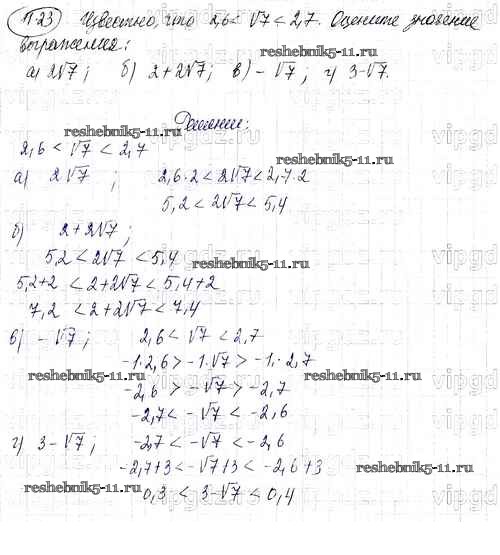 1.23 Известно, что 2,6 < √7 < 2,7. Оцените значение
выражения:
а) 2√7; б) 2+2√7; в) -√7; г) 3-√7.
Решение:
reshebnik5-11.ru
2,6 < √7 < 2,7
а) 2√7; 2,6·2 < 2√7 < 2,7·2
5,2 < 2√7 < 5,4
б) 2+2√7;
5,2 < 2√7 < 5,4
reshebnik5-11.ru
5,2+2 < 2+2√7 < 5,4+2
7,2 < 2+2√7 < 7,4
в) -√7; 2,6 < √7 < 2,7
-1·2,6 > -1·√7 > -1·-2,7
reshebnik5-11.ru
-2,6 > -√7 > -2,7
-2,7 < -√7 < -2,6
г) 3-√7; -2,7 < -√7 < -2,6
-2,7+3 < -√7+3 < -2,6+3
reshebnik5-11.ru
reshebnik5-11.ru
0,3 < 3-√7 < 0,4
vipgdz